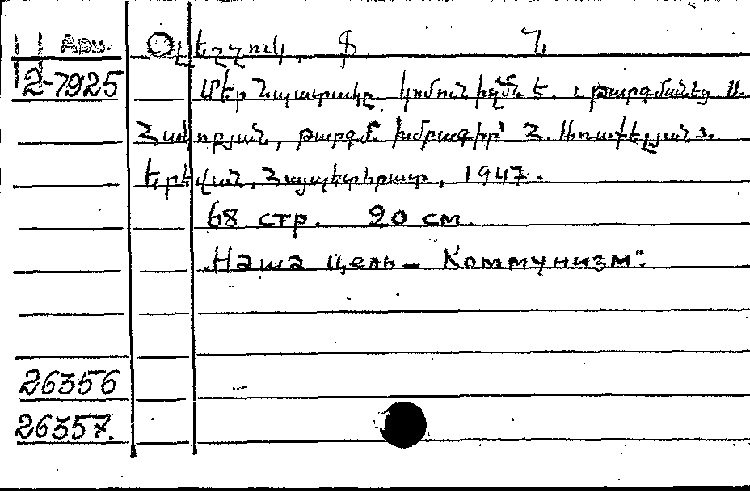 Арм. Օլեշչուկ, Ֆ. Ն.
2-7925 Մեր նպատակը կոմունիզմն է. թարգմանեց Ա.
Հակոբյան, թարգմ. խմբագիր՝ Հ. Առաքելյան.
Երևան, Հայպետհրատ, 1947.
68 стр. 20 см.
„Наша цель – Коммунизм".
26356
26357.